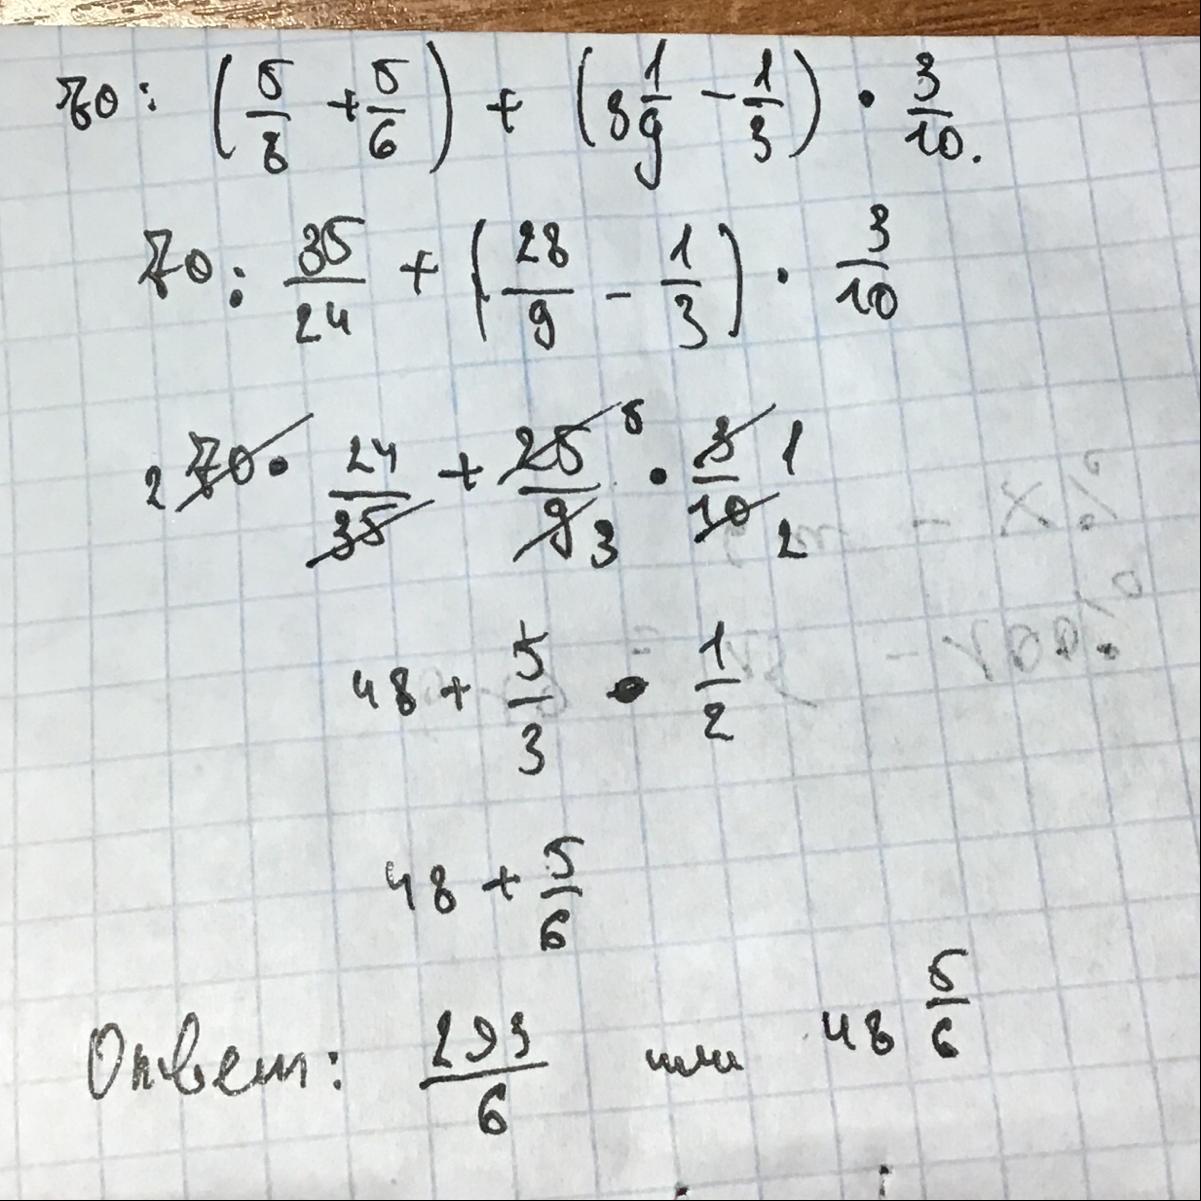 70 : (5/8 + 5/6) + (3 1/9 - 1/3) · 3/10.
70 : 35/24 + (28/9 - 1/3) · 3/10
2 70 · 24/35 + 25/9 5 3 · 3/10 1 2
48 + 5/3 · 1/2
48 + 5/6
Ответ: 293/6 или 48 5/6